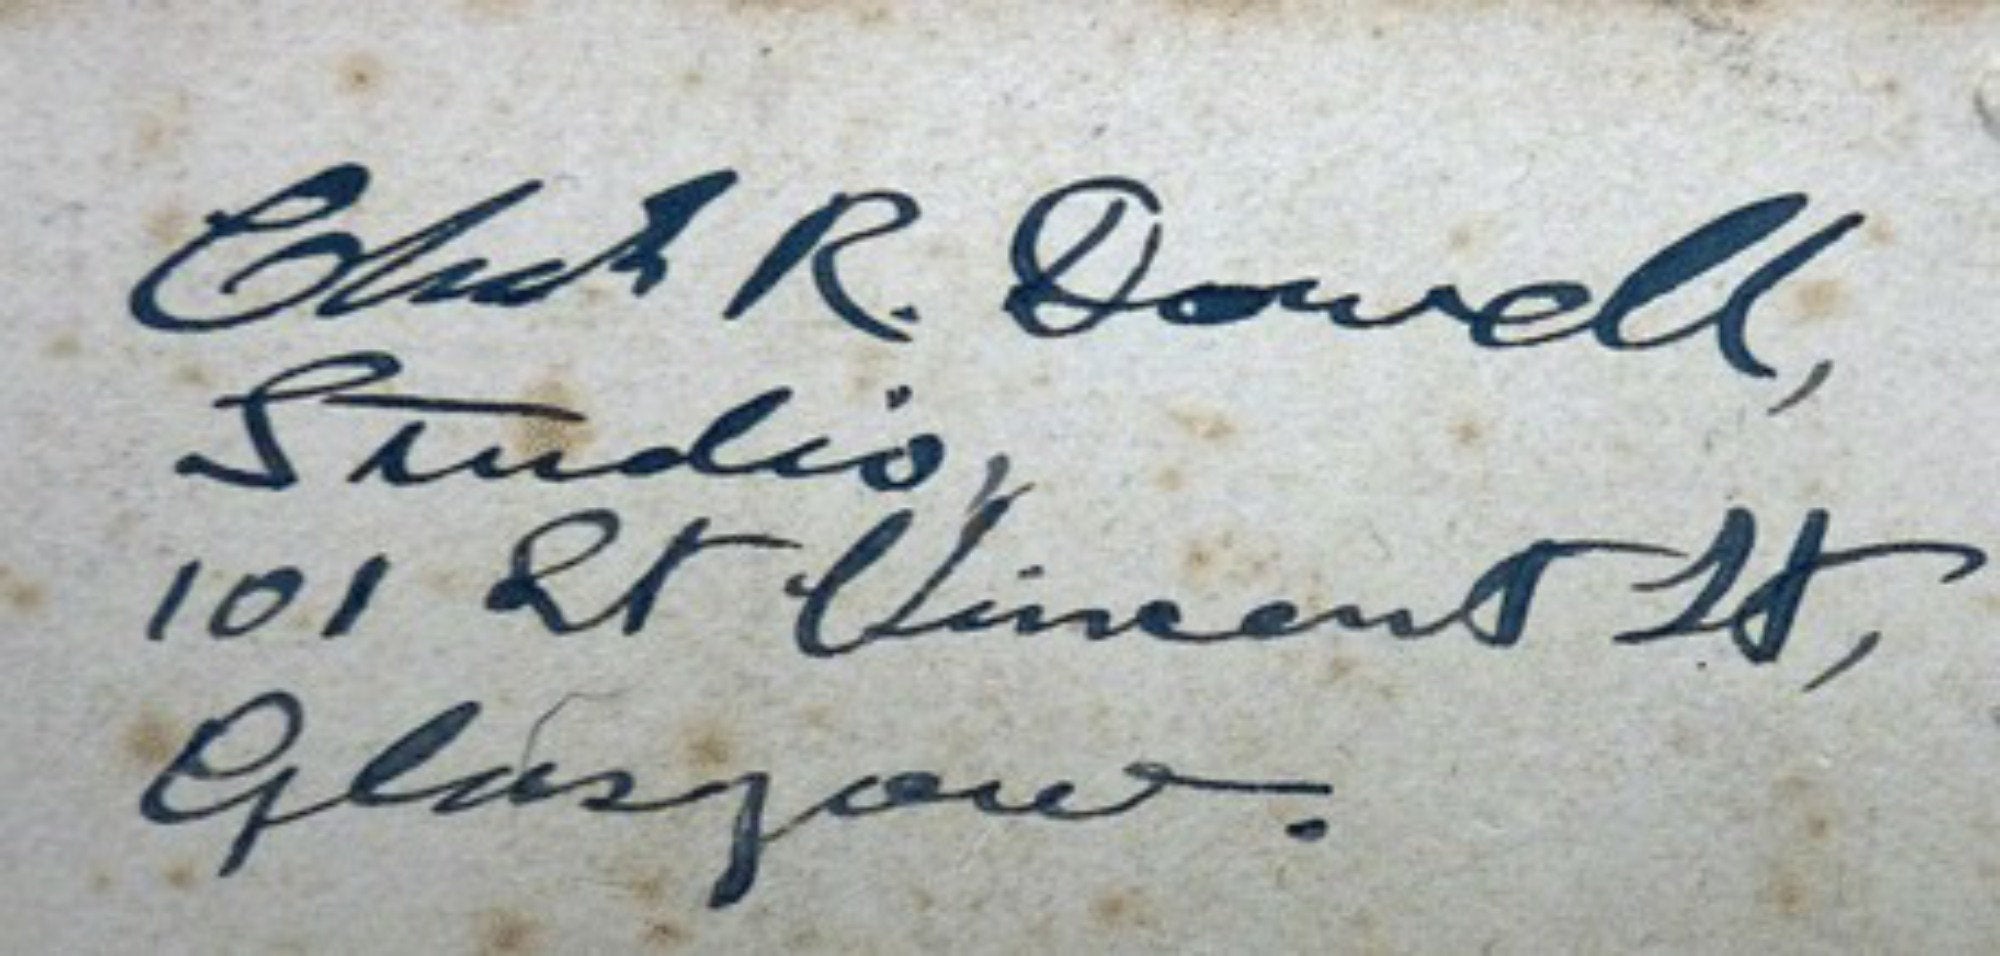 Chas R. Dowell,
Studio,
101 St Vincent St,
Glasgow.